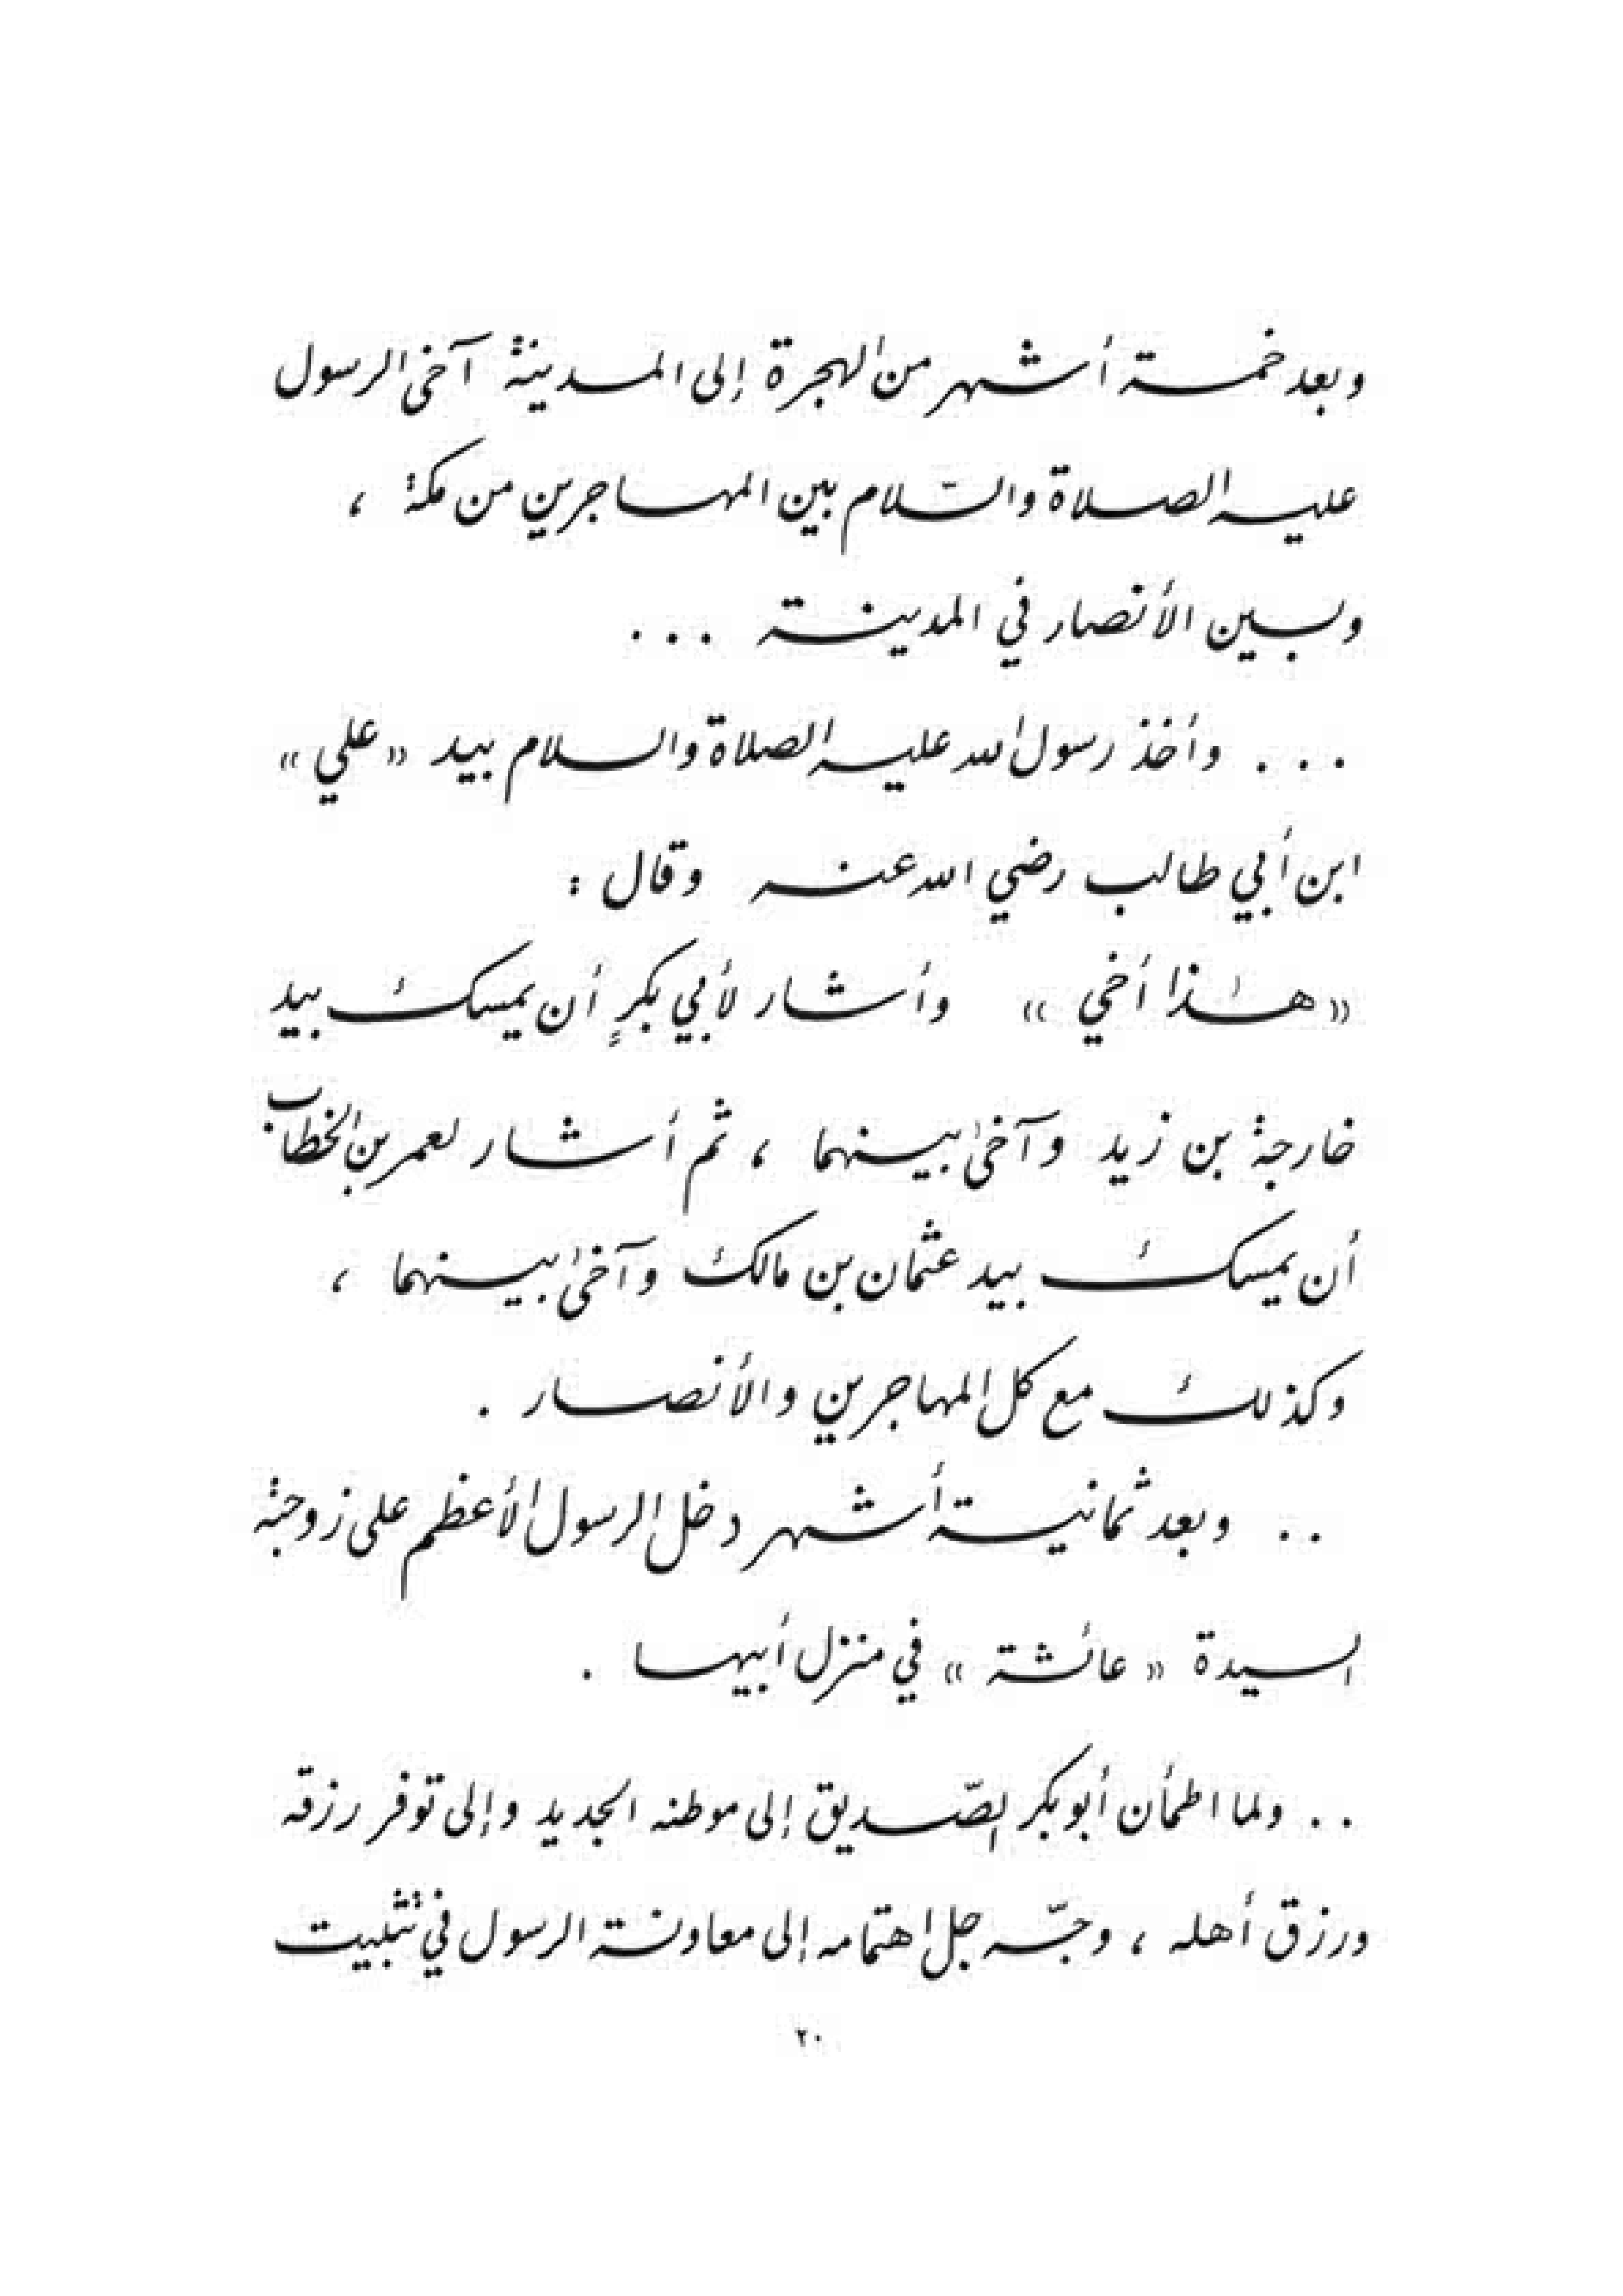 وبعد خمسة أشهر من الهجرة إلى المدينة آخى الرسول
عليه الصلاة والسّلام بين المهاجرين من مكة ،
وبين الأنصار في المدينة ...
... وأخذ رسول الله عليه الصلاة والسلام بيد « علي »
ابن أبي طالب رضي الله عنه وقال :
« هٰذا أخي » وأشار لأبي بكرٍ أن يمسك بيد
خارجة بن زيد وآخىٰ بينهما ، ثم أشار لعمر بن الخطاب
أن يمسك بيد عثمان بن مالك وآخىٰ بينهما ،
وكذلك مع كل المهاجرين والأنصار .
.. وبعد ثمانية أشهر دخل الرسول الأعظم على زوجته
السيدة « عائشة » في منزل أبيها .
.. ولما اطمأن أبو بكر الصّديق إلى موطنه الجديد وإلى توفر رزقه
ورزق أهله ، وجّه جل اهتمامه إلى معاونة الرسول في تثبيت
٢٠